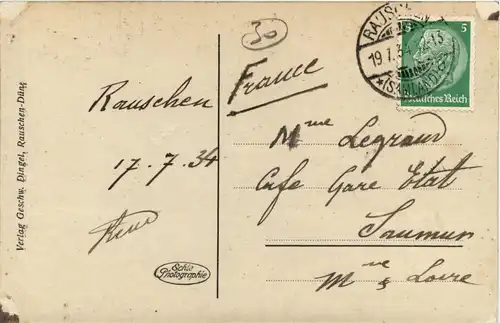 30
RAUSCHEN
19.7.34 12-13
*(SAMLAND)
5
Deutsches Reich
France
Rauschen
17.7.34
Mme Legraud
Cafe Gare Etat
Saumur
Mne & Loire
Echte
Photographie
Verlag Geschw. Dingel, Rauschen-Düne